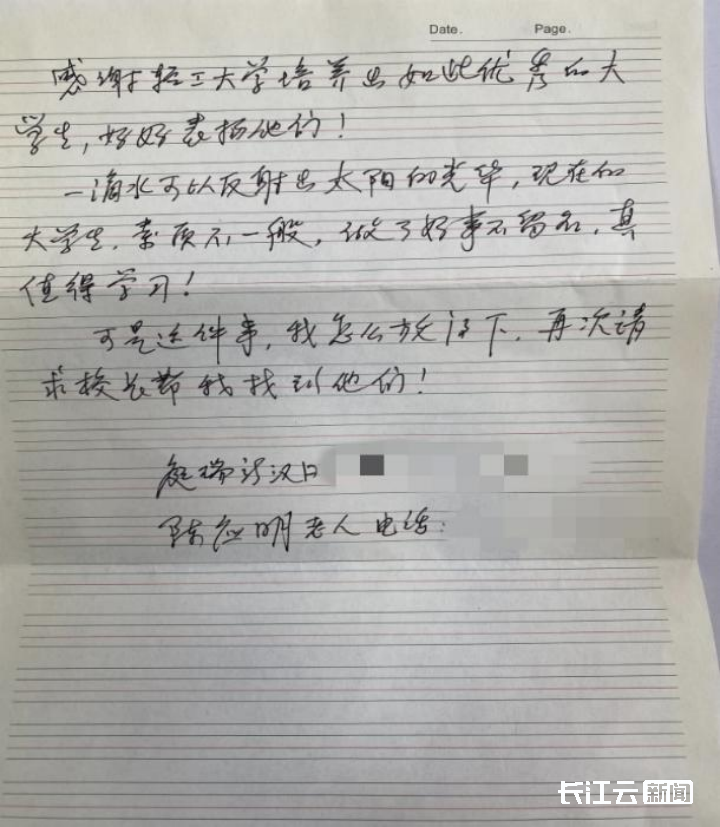 Date.
Page.
感谢轻工大学培养出如此优秀的大
学生，好好表扬他们！
一滴水可以反射出太阳的光华，现在的
大学生，素质不一般，做了好事不留名，真
值得学习！
可是这件事，我怎么放得下，再次请
求校长帮我找到他们！
庭瑞新汉口
陈应明老人电话：
长江云新闻